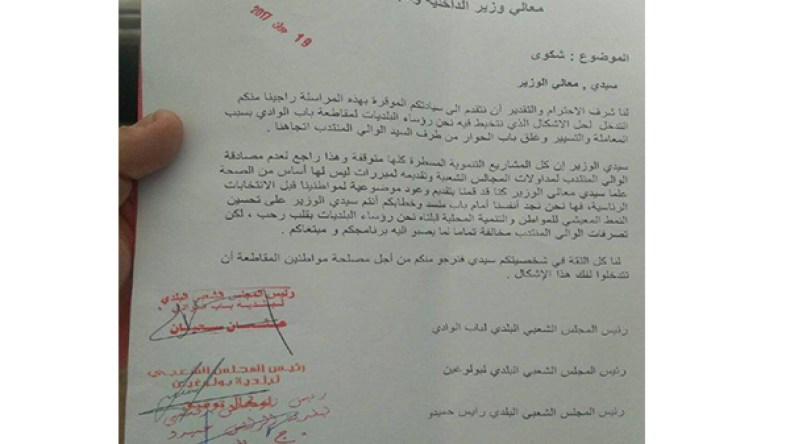 معالي وزير الداخلية و
19 جان 2017
الموضوع : شكوى
سيدي , معالي الوزير
لنا شرف الاحترام والتقدير أن نتقدم الى سيادتكم الموقرة بهذه المراسلة راجينا منكم
التدخل لحل الاشكال الذي نتخبط فيه نحن رؤساء البلديات لمقاطعة باب الوادي بسبب
المعاملة والتسيير وغلق باب الحوار من طرف السيد الوالي المنتدب اتجاهنا .
سيدي الوزير إن كل المشاريع التنموية المسطرة كلها متوقفة وهذا راجع لعدم مصادقة
الوالي المنتدب لمداولات المجالس الشعبية وتقديمه لمبررات ليس لها أساس من الصحة
علما سيدي معالي الوزير كنا قد قمنا بتقديم وعود موضوعية لمواطنينا قبل الانتخابات
الرئاسية، فها نحن نجد أنفسنا أمام باب منسد وخطابكم أنتم سيدي الوزير على تحسين
النمط المعيشي للمواطن والتنمية المحلية قبلناه نحن رؤساء البلديات بقلب رحب ، لكن
تصرفات الوالي المنتدب مخالفة تماما لما يصبو اليه برنامجكم و مبتغاكم .
لنا كل الثقة في شخصيتكم سيدي فنرجو منكم من أجل مصلحة مواطنين المقاطعة أن
تتدخلوا لفك هذا الإشكال .
رئيس المجلس الشعبي البلدي
لبلدية باب الوادي
عثمان سحبان
رئيس المجلس الشعبي البلدي لباب الوادي
رئيس المجلس الشعبي
لبلدية بولوغين
رئيس المجلس الشعبي البلدي لبولوغين
رئيس المجلس الشعبي البلدي رايس حميدو